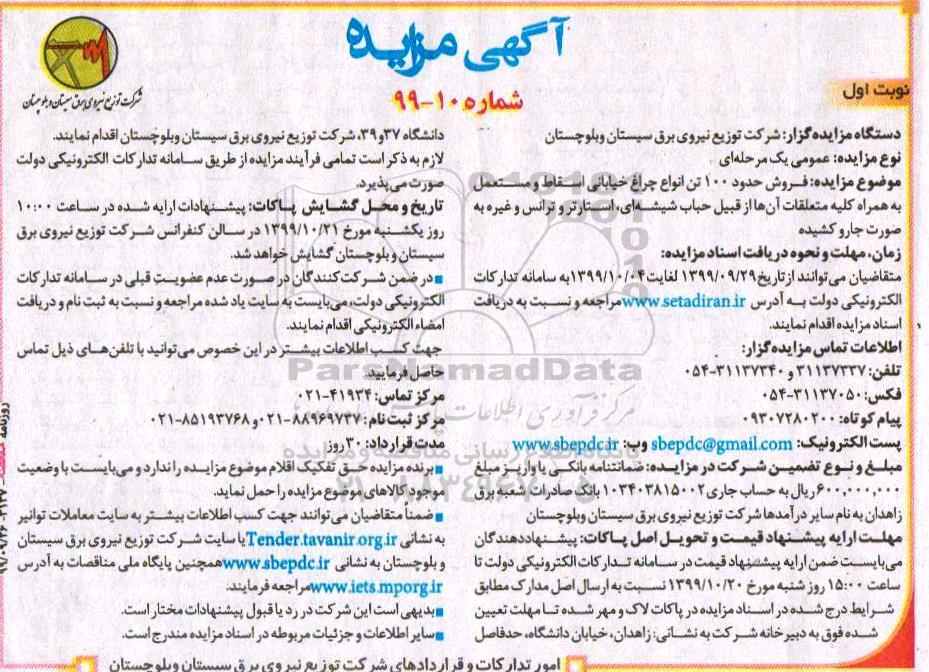 آگهی مزایده
شماره ۱۰-۹۹
نوبت اول
شرکت توزیع نیروی برق سیستان و بلوچستان
دستگاه مزایده‌گزار: شرکت توزیع نیروی برق سیستان وبلوچستان
نوع مزایده: عمومی یک مرحله‌ای
موضوع مزایده: فروش حدود ۱۰۰ تن انواع چراغ خیابانی اسقاط و مستعمل
به همراه کلیه متعلقات آن‌ها از قبیل حباب شیشه‌ای، استارتر و ترانس و غیره به
صورت جارو کشیده
زمان، مهلت و نحوه دریافت اسناد مزایده:
متقاضیان می‌توانند از تاریخ ۱۳۹۹/۰۹/۲۹ لغایت ۱۳۹۹/۱۰/۰۴ به سامانه تدارکات
الکترونیکی دولت به آدرس www.setadiran.ir مراجعه و نسبت به دریافت
اسناد مزایده اقدام نمایند.
اطلاعات تماس مزایده‌گزار:
تلفن: ۳۱۱۳۷۳۳۷ و ۳۱۱۳۷۳۴۰-۰۵۴
فکس: ۳۱۱۳۷۰۵۰-۰۵۴
پیام کوتاه: ۰۹۳۰۷۲۸۰۲۰۰
پست الکترونیک: sbepdc@gmail.com وب: www.sbepdc.ir
مبلغ و نوع تضمین شرکت در مزایده: ضمانتنامه بانکی یا واریز مبلغ
۶۰۰,۰۰۰,۰۰۰ ریال به حساب جاری ۱۰۳۴۰۳۸۱۵۰۰۲ بانک صادرات شعبه برق
زاهدان به نام سایر درآمدها شرکت توزیع نیروی برق سیستان وبلوچستان
مهلت ارایه پیشنهاد قیمت و تحویل اصل پاکات: پیشنهاددهندگان
می‌بایست ضمن ارایه پیشنهاد قیمت در سامانه تدارکات الکترونیکی دولت تا
ساعت ۱۵:۰۰ روز شنبه مورخ ۱۳۹۹/۱۰/۲۰ نسبت به ارسال اصل مدارک مطابق
شرایط درج شده در اسناد مزایده در پاکات لاک و مهر شده تا مهلت تعیین
شده فوق به دبیرخانه شرکت به نشانی: زاهدان، خیابان دانشگاه، حدفاصل
دانشگاه ۳۷ و ۳۹، شرکت توزیع نیروی برق سیستان وبلوچستان اقدام نمایند.
لازم به ذکر است تمامی فرآیند مزایده از طریق سامانه تدارکات الکترونیکی دولت
صورت می‌پذیرد.
تاریخ و محل گشایش پاکات: پیشنهادات ارایه شده در ساعت ۱۰:۰۰
روز یکشنبه مورخ ۱۳۹۹/۱۰/۲۱ در سالن کنفرانس شرکت توزیع نیروی برق
سیستان و بلوچستان گشایش خواهد شد.
■ در ضمن شرکت کنندگان در صورت عدم عضویت قبلی در سامانه تدارکات
الکترونیکی دولت، می‌بایست به سایت یاد شده مراجعه و نسبت به ثبت نام و دریافت
امضاء الکترونیکی اقدام نمایند.
جهت کسب اطلاعات بیشتر در این خصوص می‌توانید با تلفن‌های ذیل تماس
حاصل فرمایید
مرکز تماس: ۴۱۹۳۴-۰۲۱
مرکز ثبت‌نام: ۸۸۹۶۹۷۳۷-۰۲۱ و ۸۵۱۹۳۷۶۸-۰۲۱
مدت قرارداد: ۳۰ روز
■ برنده مزایده حق تفکیک اقلام موضوع مزایده را ندارد و می‌بایست با وضعیت
موجود کالاهای موضوع مزایده را حمل نماید.
■ ضمناً متقاضیان می‌توانند جهت کسب اطلاعات بیشتر به سایت معاملات توانیر
به نشانی Tender.tavanir.org.ir یا سایت شرکت توزیع نیروی برق سیستان
و بلوچستان به نشانی www.sbepdc.ir همچنین پایگاه ملی مناقصات به آدرس
www.iets.mporg.ir مراجعه فرمایند.
■ بدیهی است این شرکت در رد یا قبول پیشنهادات مختار است.
■ سایر اطلاعات و جزئیات مربوطه در اسناد مزایده مندرج است.
امور تدارکات و قراردادهای شرکت توزیع نیروی برق سیستان وبلوچستان
ParsNamadData